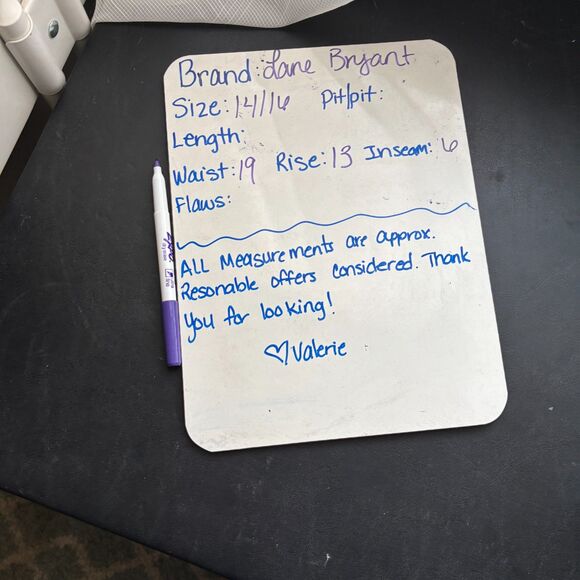 Brand: Lane Bryant
Size: 14/16 Pit/pit:
Length:
Waist: 19 Rise: 13 Inseam: 6
Flaws:
All Measurements are approx.
Resonable offers considered. Thank
you for looking!
♡Valerie
EXPO